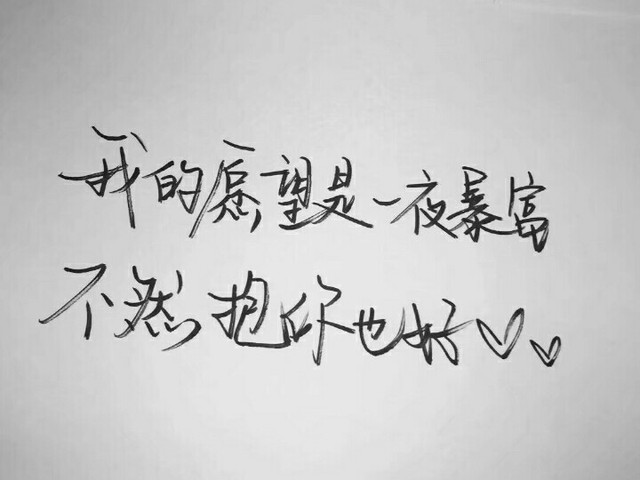 我的愿望是一夜暴富
不然抱你也好♡♡